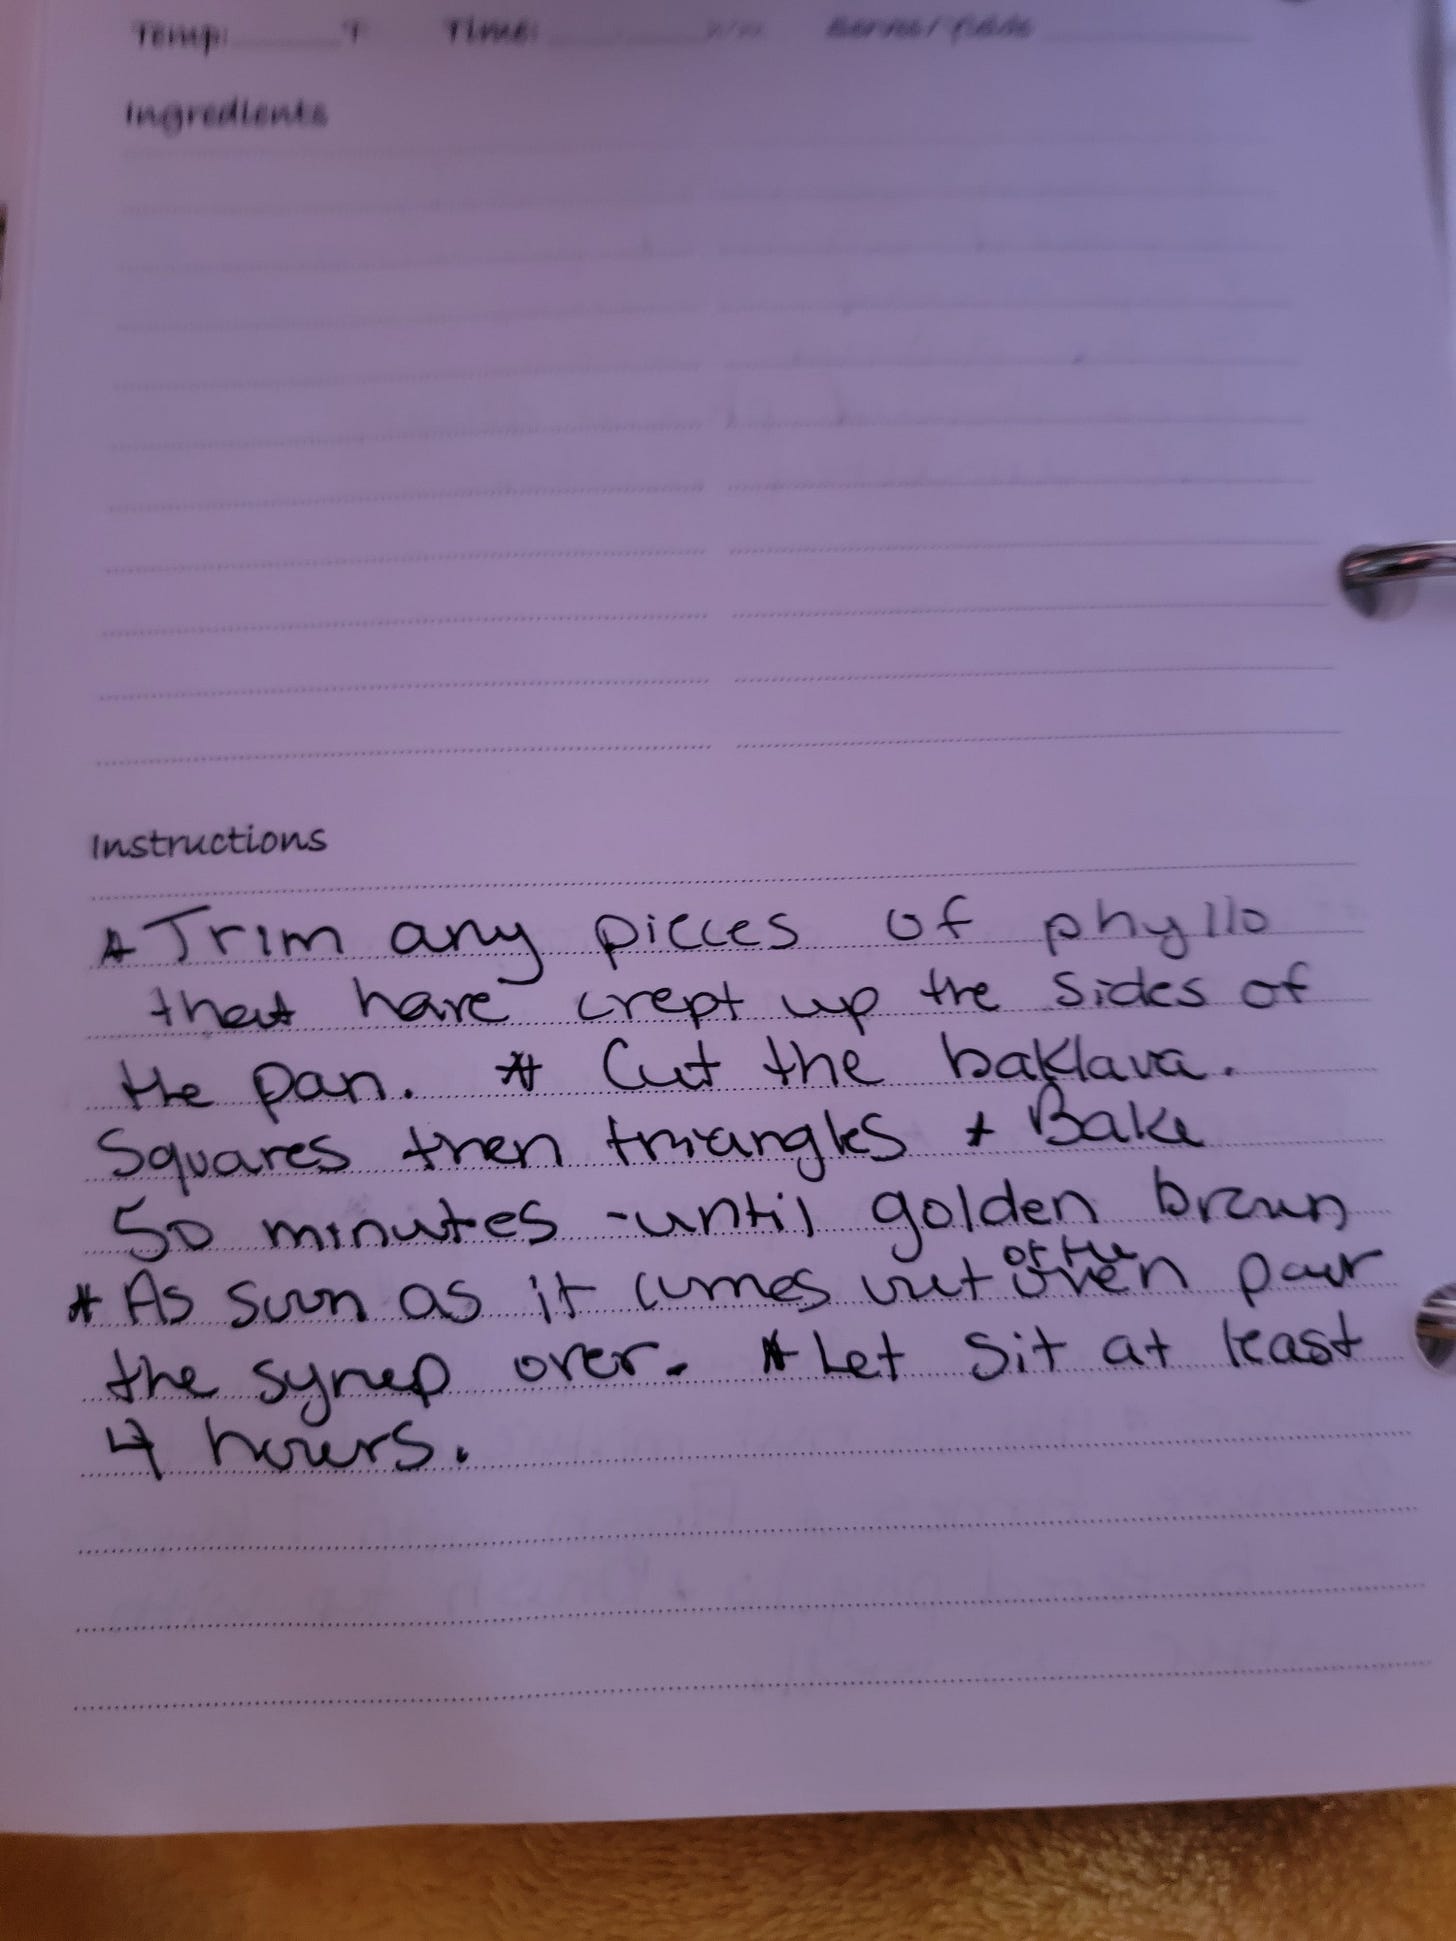 Temp: F Time: Serves/Yields
Ingredients
Instructions
* Trim any pieces of phyllo
that have crept up the sides of
the pan. * Cut the baklava.
Squares then triangles * Bake
50 minutes - until golden brown
* As soon as it comes out of the oven pour
the syrup over. * Let sit at least
4 hours.